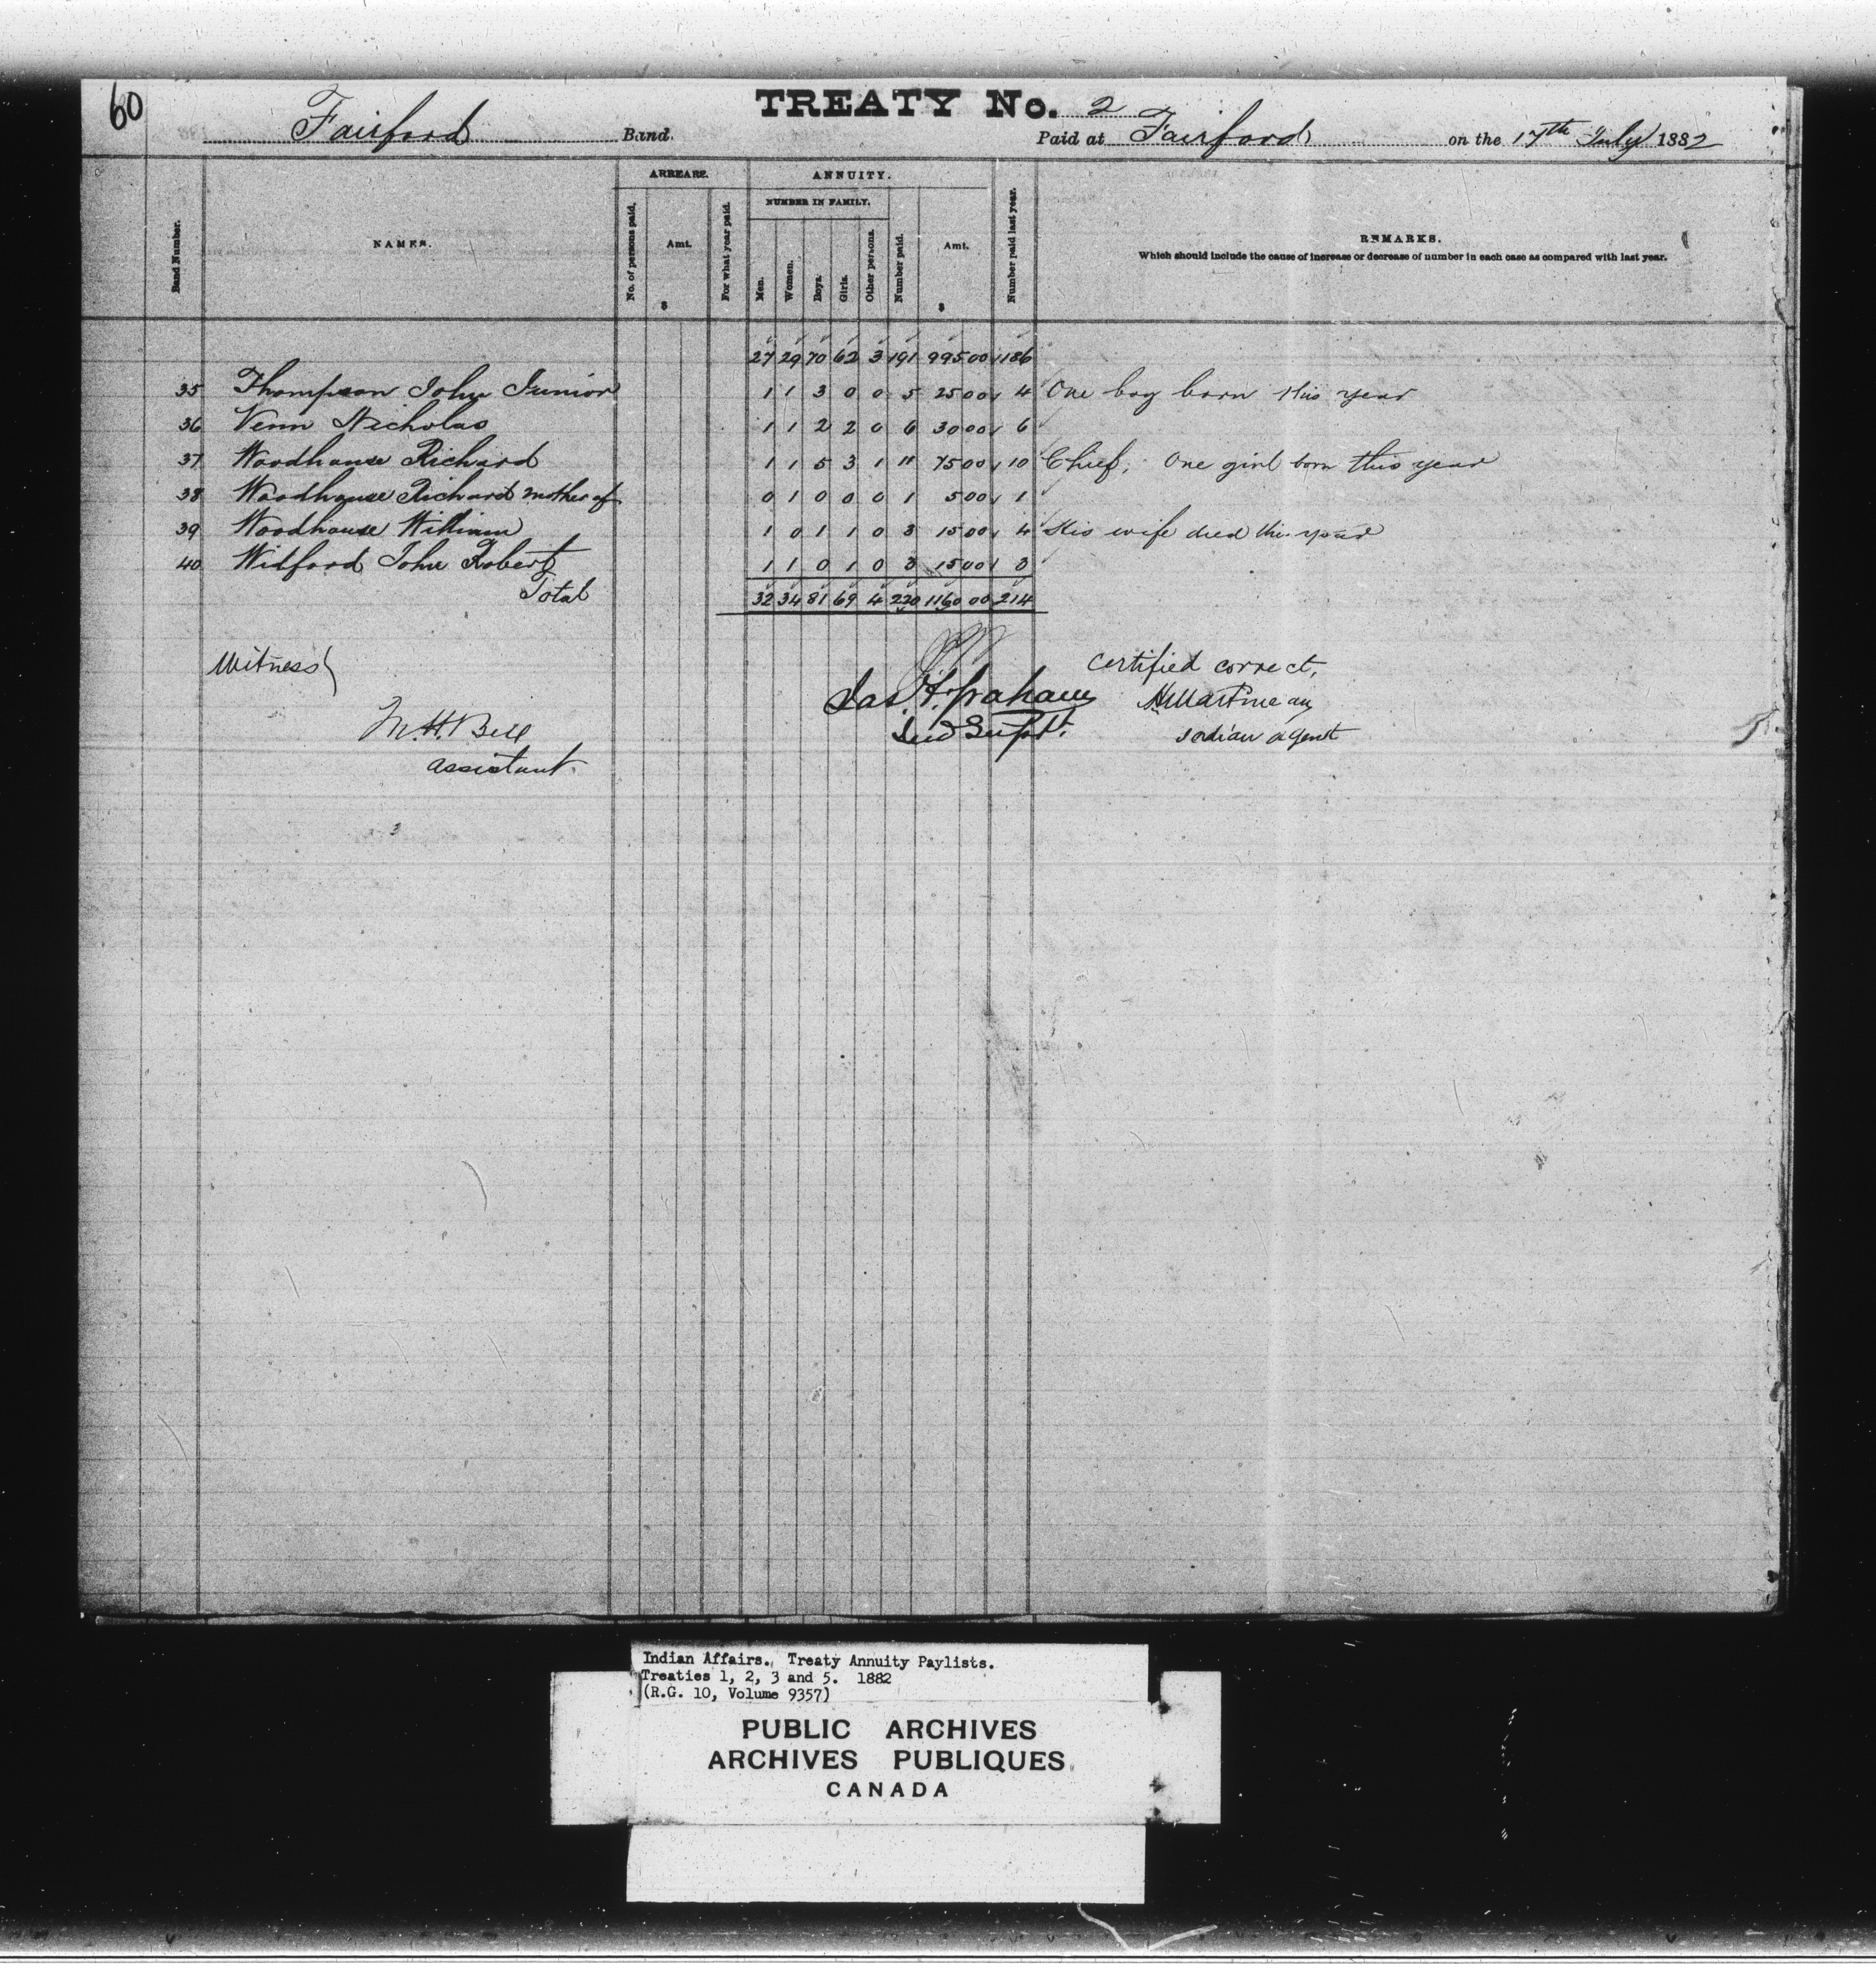 60
TREATY No. 2
Fairford Band. Paid at Fairford on the 17th July 1882
ARREARS. ANNUITY.
NUMBER IN FAMILY.
Band Number. NAMES. No. of persons paid. Amt. $ For what year paid. Men. Women. Boys. Girls. Other persons. Number paid. Amt. $ Number paid last year. REMARKS.
Which should include the cause of increase or decrease of number in each case as compared with last year.
27 29 70 62 3 191 995 00 186
35 Thompson John Junior 1 1 3 0 0 5 25 00 4 One boy born this year
36 Venn Nicholas 1 1 2 2 0 6 30 00 6
37 Woodhouse Richard 1 1 5 3 1 11 75 00 10 Chief. One girl born this year
38 Woodhouse Richard mother of 0 1 0 0 0 1 5 00 1
39 Woodhouse William 1 0 1 1 0 3 15 00 4 His wife died this year
40 Widford John Robert 1 1 0 1 0 3 15 00 3
Total 32 34 81 69 4 220 1160 00 214
Witness
M.H. Bell
assistant.
Jas. F. Graham
Ind Supt.
Certified correct,
H Martineau
Indian agent
Indian Affairs. Treaty Annuity Paylists.
Treaties 1, 2, 3 and 5. 1882
(R.G. 10, Volume 9357)
PUBLIC ARCHIVES
ARCHIVES PUBLIQUES
CANADA